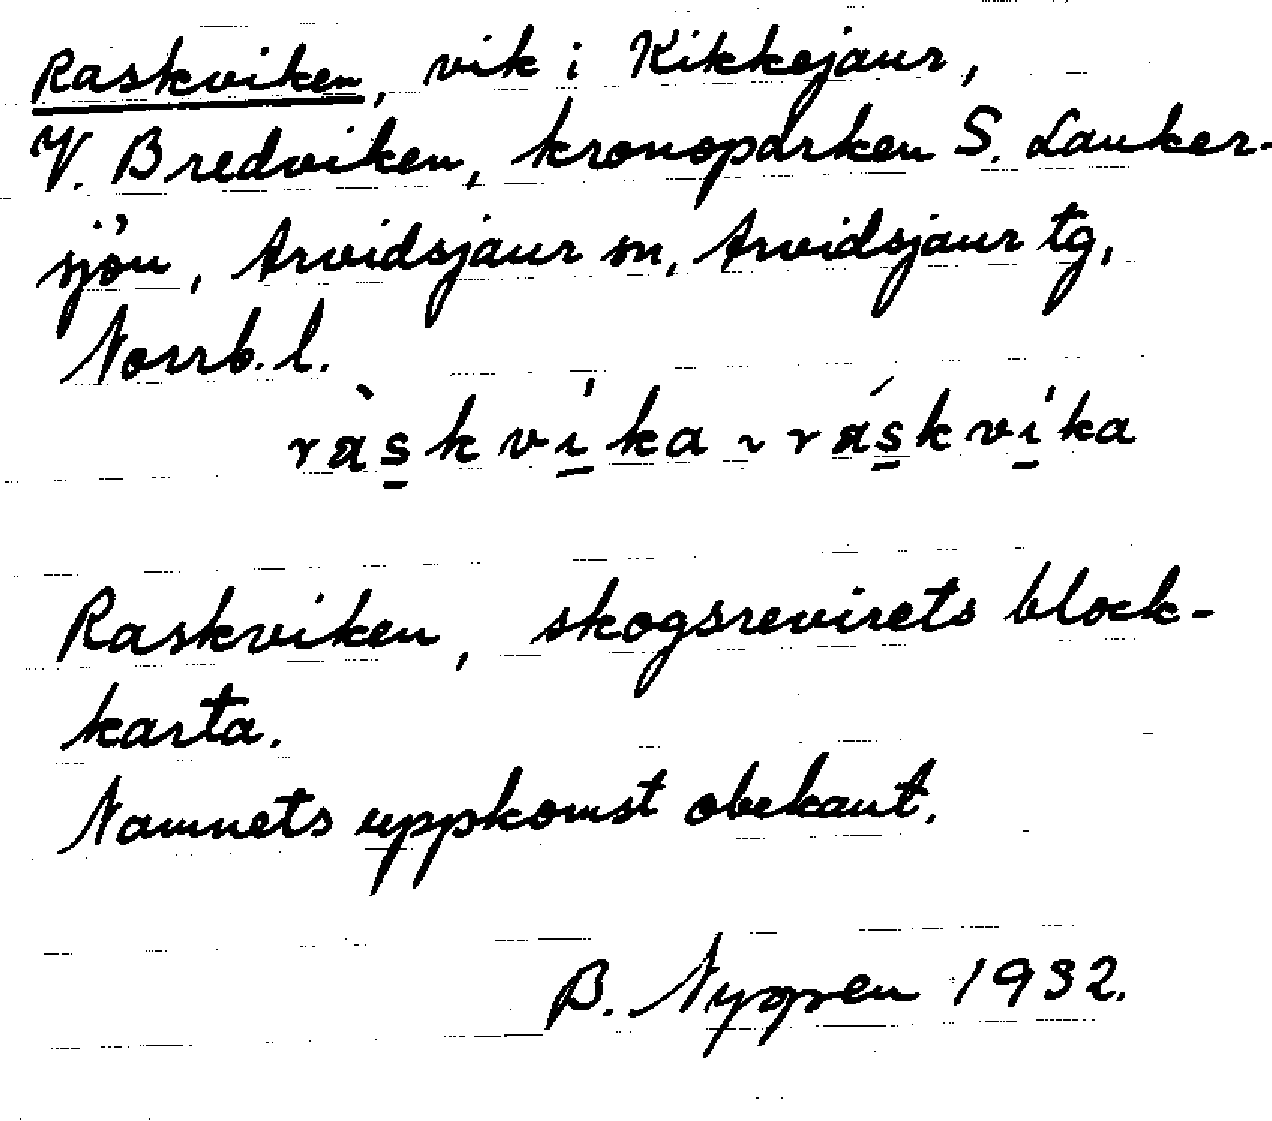 Raskviken, vik i Kikkejaur,
V. Bredviken, kronoparken S. Lauker-
sjön, Arvidsjaur sn, Arvidsjaur tg,
Norrb. l.
ràs̲kvi̲̍ka ~ rás̲kvi̲̍ka
Raskviken, skogsrevirets block-
karta.
Namnets uppkomst obekant.
B. Nygren 1932.